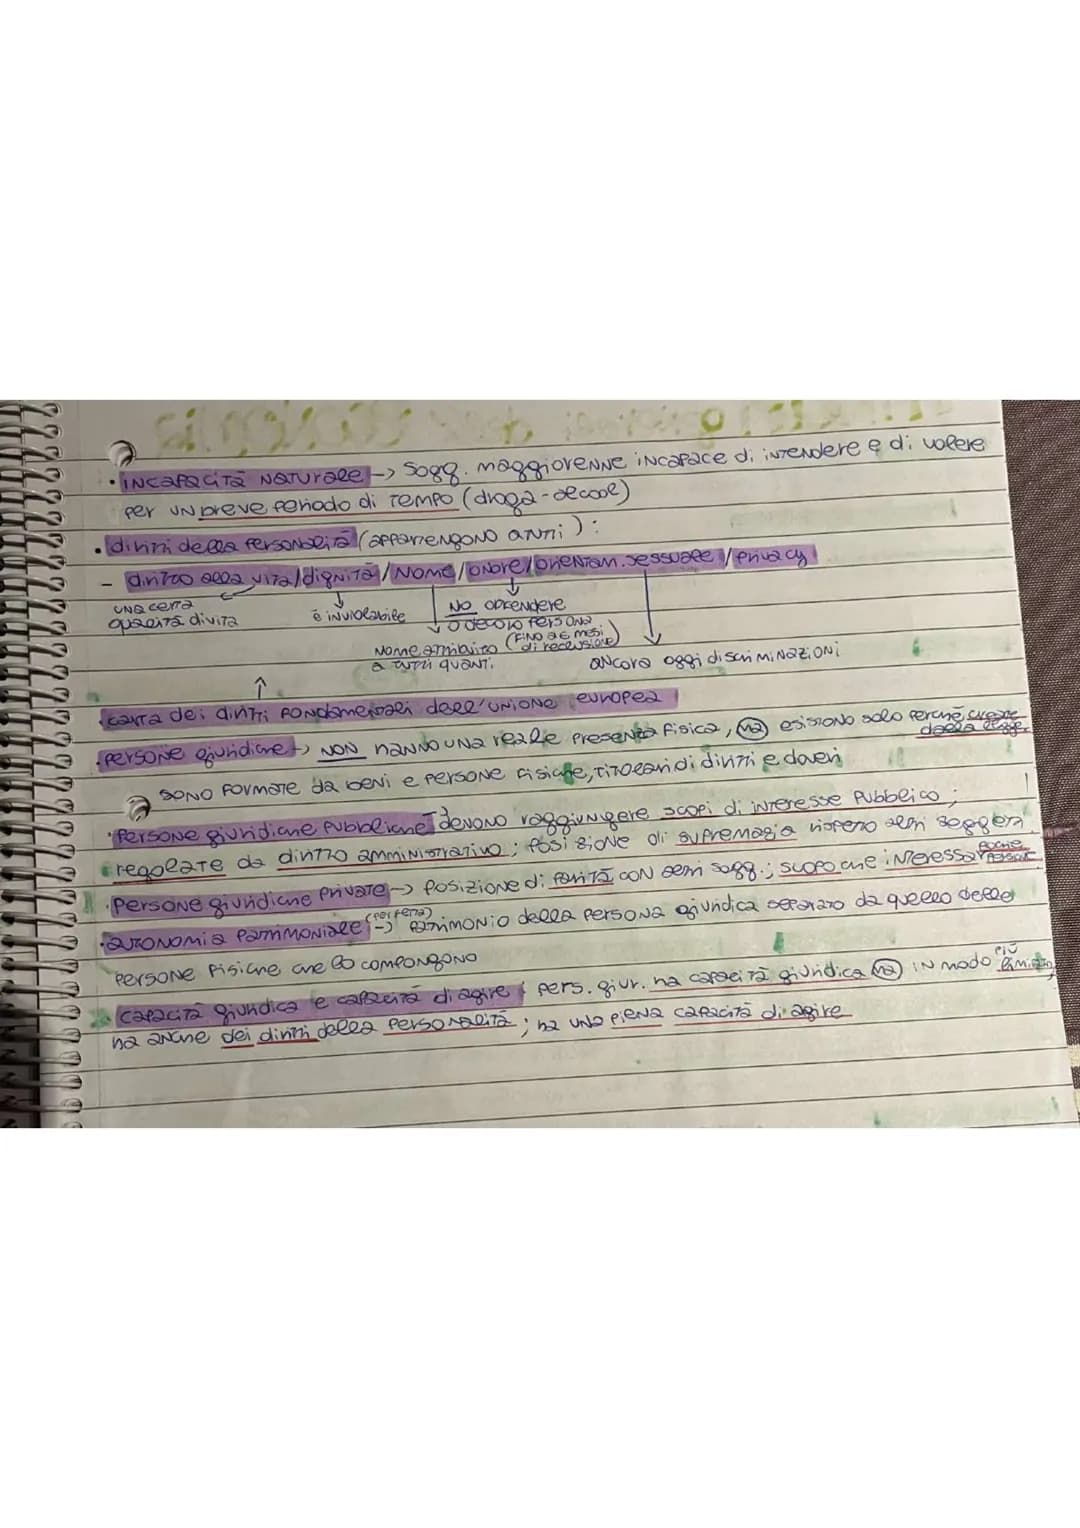 • INCAPACITÀ NATURALE -> sogg. maggiorenne incapace di intendere e di volere
per un breve periodo di tempo (droga-alcool)
• diritti della personalità (appartengono a tutti):
- diritto alla vita/dignità/nome/onore/orientam. sessuale/privacy
una certa
qualità di vita
è inviolabile
NO offendere
o decoro persona
(fino a 6 mesi
di reclusione)
nome attribuito
a tutti quanti
ancora oggi discriminazioni
• carta dei diritti fondamentali dell'unione europea
• persone giuridiche -> NON hanno una reale presenza fisica, ma esistono solo perché create
dalla legge
sono formate da beni e persone fisiche, titolari di diritti e doveri
• Persone giuridiche pubbliche devono raggiungere scopi di interesse pubblico;
regolate da diritto amministrativo; posizione di supremazia rispetto altri soggetti
• Persone giuridiche private -> posizione di parità con altri sogg.; scopo che interessa poche
persone
• autonomia patrimoniale (perfetta) -> patrimonio della persona giuridica separato da quello delle
persone fisiche che lo compongono
• capacità giuridica e capacità di agire: pers. giur. ha capacità giuridica ma in modo più
limitato,
ha anche dei diritti della personalità; ha una piena capacità di agire